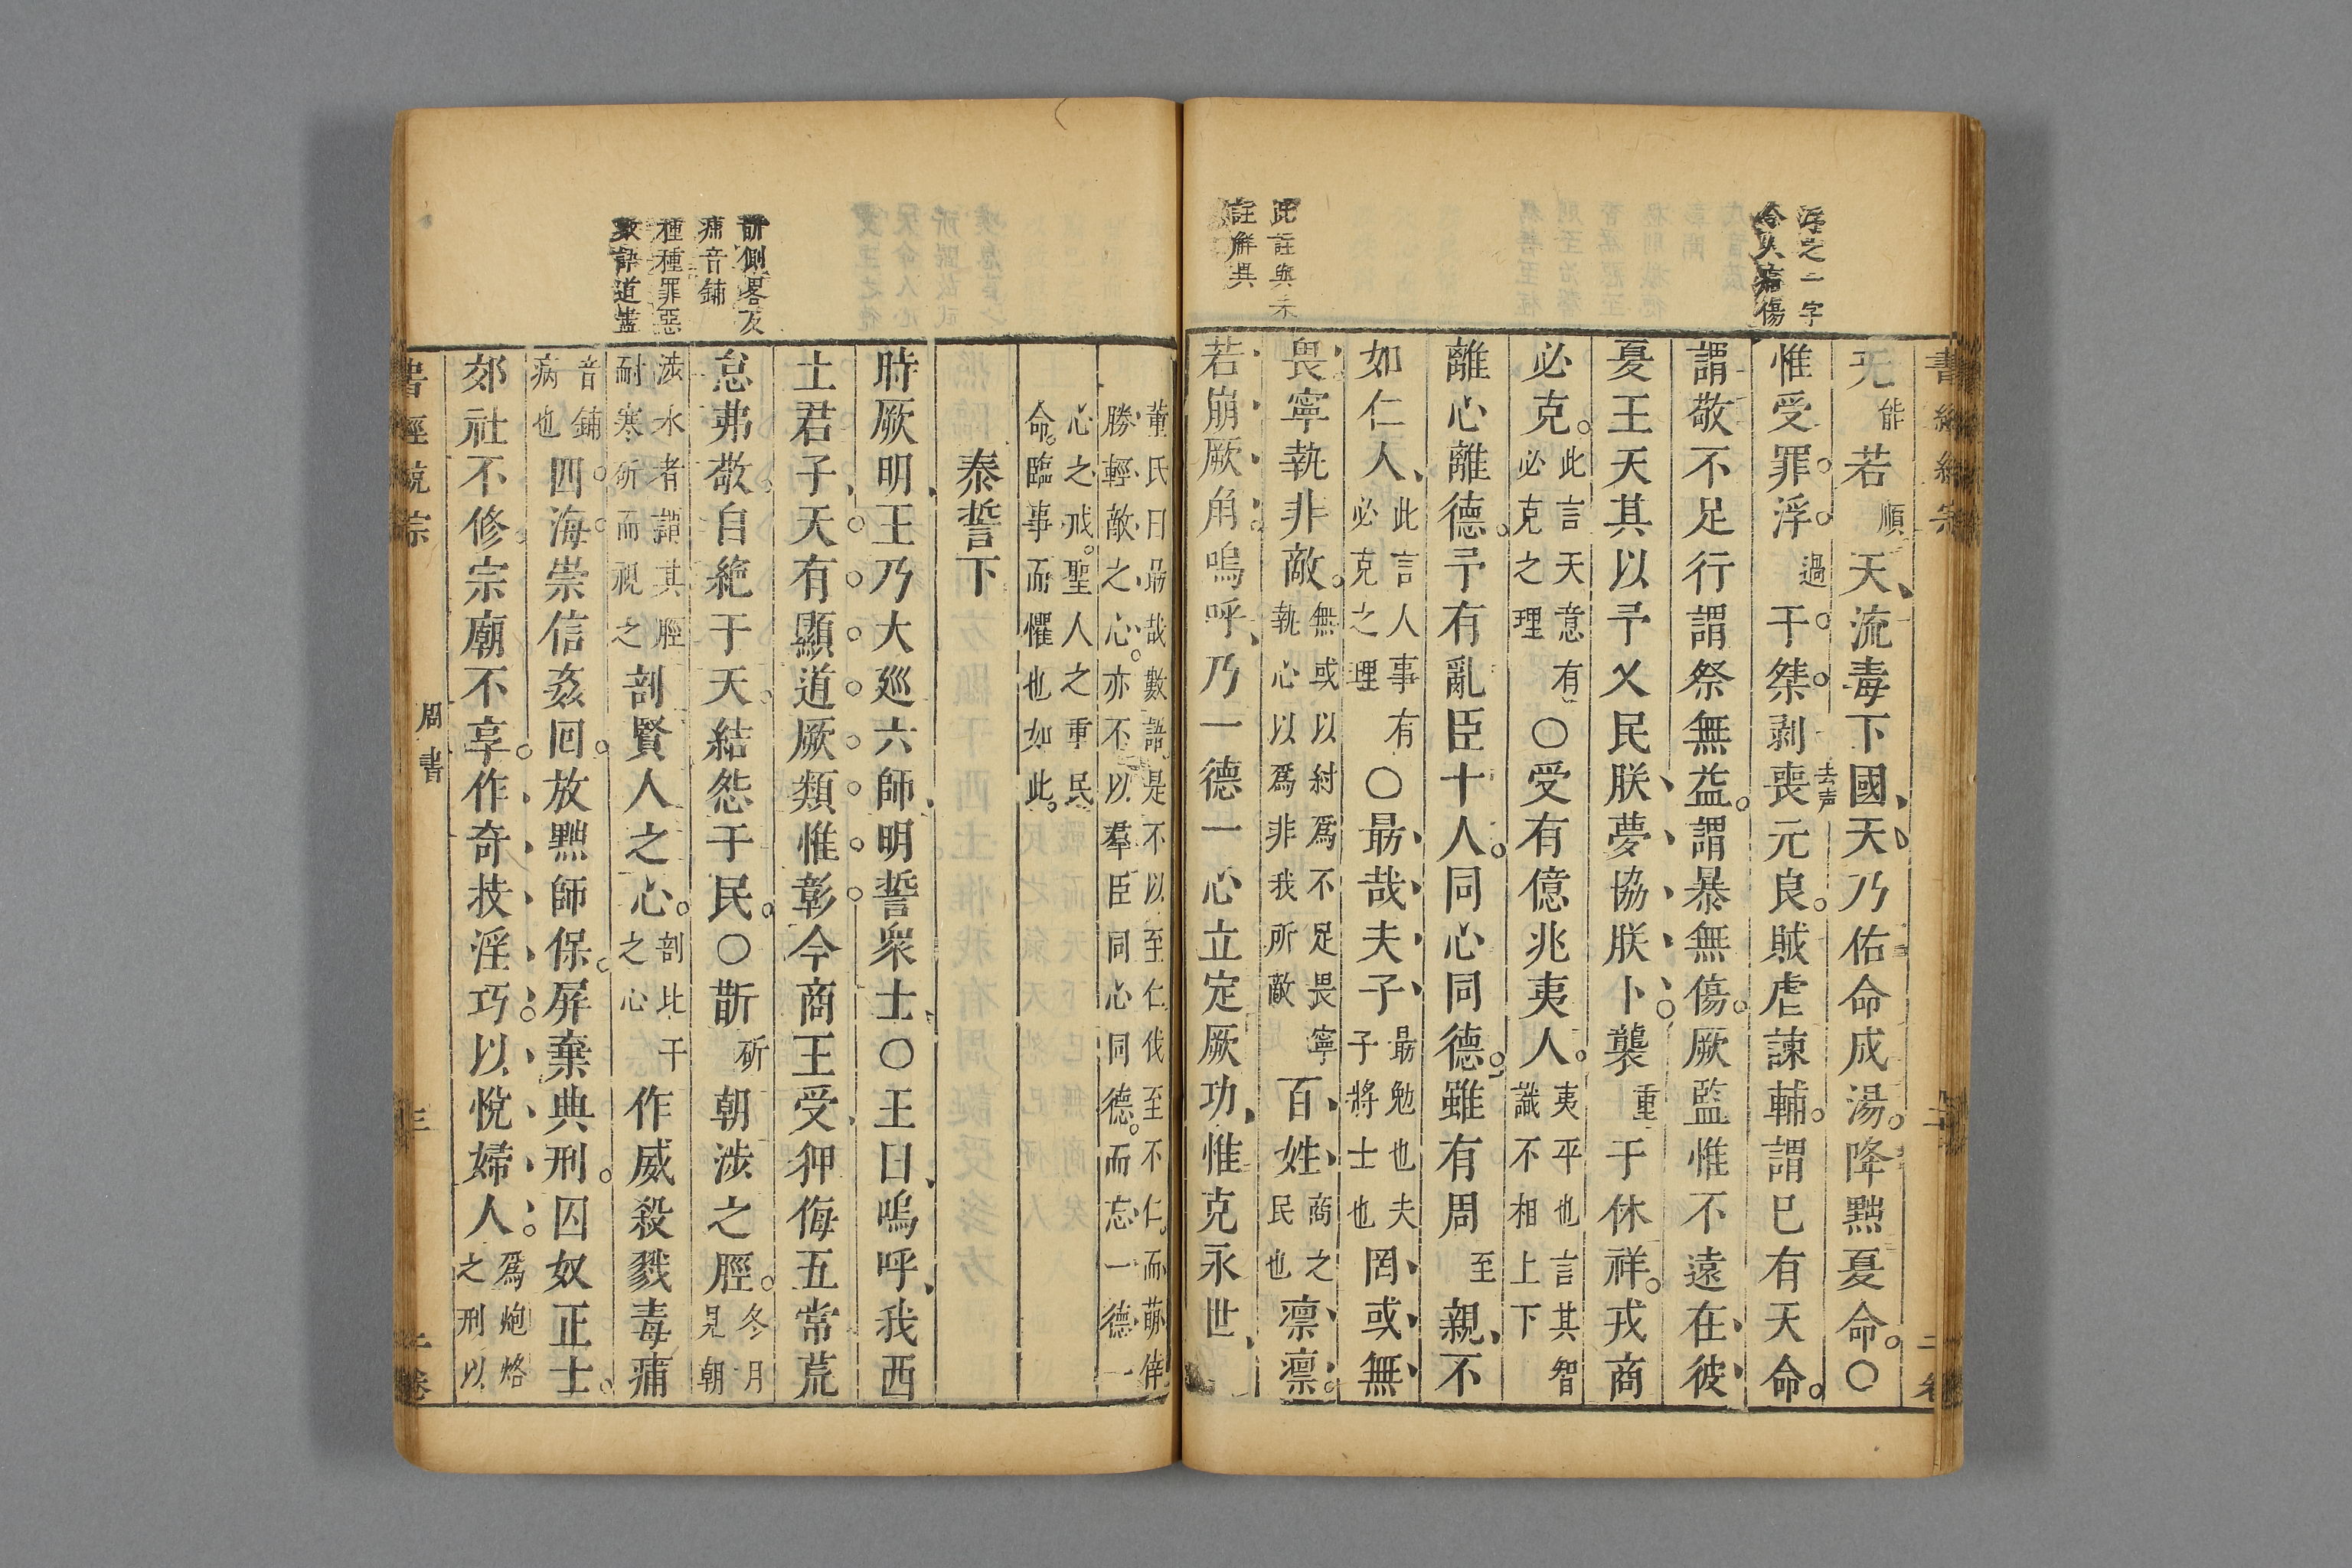 浮之二字
令人
无能若順天流毒下國天乃佑命成湯降黜夏命○
惟受罪浮過于桀剥喪去声元良賊虐諫輔謂已有天命
謂敬不足行謂祭無益謂暴無傷厥監惟不遠在彼
夏王天其以予乂民朕夢協朕卜襲重于休祥戎商
必克此言天意有必克之理○受有億兆夷人夷平也言其智識不相上下
離心離德予有亂臣十人同心同德雖有周至親不
如仁人此言人事有必克之理○勗哉夫子勗勉也夫子將士也罔或無
畏寧執非敵無或以紂爲不足畏寧執心以爲非我所敵百姓商之民也凛凛
若崩厥角嗚呼乃一德一心立定厥功惟克永世
此註與朱
註解異
董氏曰勗哉數語是不以至仁伐至不仁而萠倖
勝輕敵之心亦不以羣臣同心同德而忘一德一
心之戒聖人之重民
命臨事而懼也如此
泰誓下
時厥明王乃大廵六師明誓衆士○王曰嗚呼我西
土君子天有顯道厥類惟彰今商王受狎侮五常荒
怠弗敬自絶于天結怨于民○斮斫朝涉之脛冬月見朝
涉水者謂其脛耐寒斫而視之剖賢人之心剖比干之心作威殺戮毒痡
音鋪病也四海崇信姦回放黜師保屏棄典刑囚奴正士
郊社不修宗廟不享作奇技淫巧以悅婦人爲炮烙之刑以
斮側畧反
痡音鋪
種種罪惡
數語道盡
書經統宗
周書
三
二卷